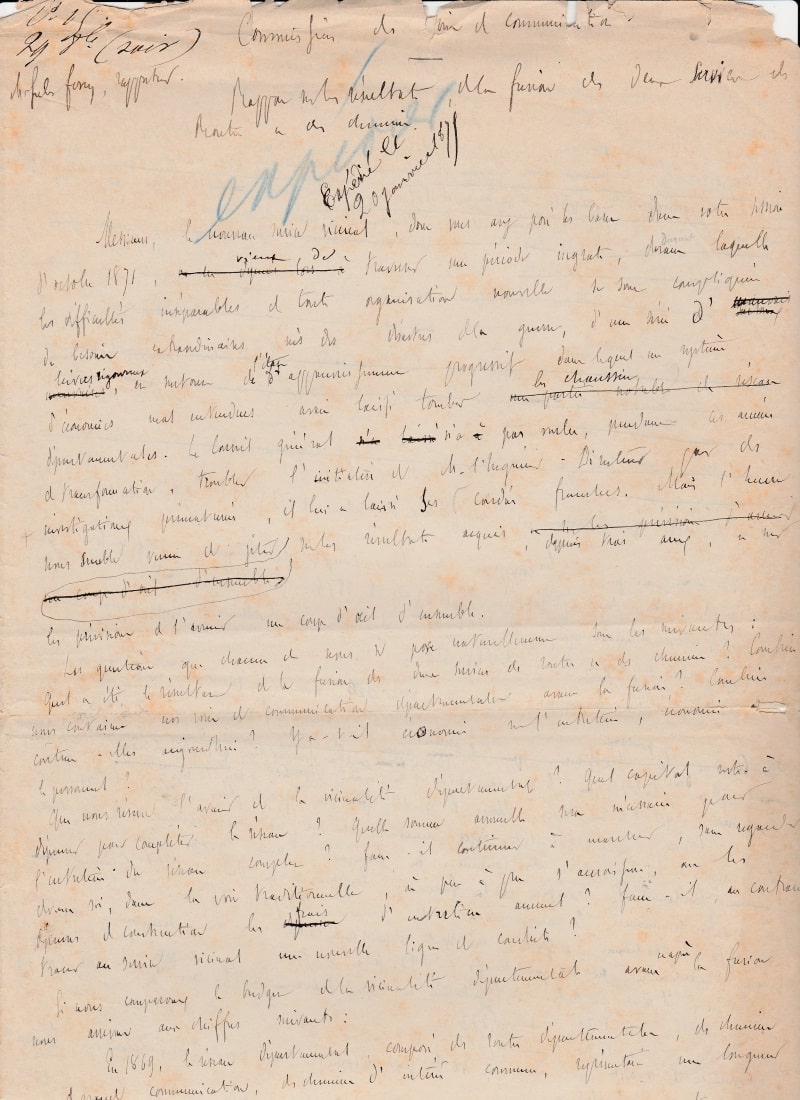 29 (soir)
Commission des Voies de communication
Jules Ferry, rapporteur.
Rapport sur les résultats de la fusion des deux services des
Routes et des chemins
expédié
Expédié le
20 janvier 187
Messieurs, le nouveau service vicinal, dont vous avez posé les bases dans votre session
d'octobre 1871, vient de traverser une période ingrate, durant laquelle
les difficultés inséparables de toute organisation nouvelle se sont compliquées
de besoins extraordinaires nés des désastres de la guerre, d'une série d'
hivers rigoureux, et surtout de l'état d'appauvrissement progressif dans lequel un système
d'économies mal entendues avait laissé tomber les chaussées
départementales. Le Conseil général n'a pas voulu, pendant ces années
de transformation, troubler l'initiative de M. l'Ingénieur-Directeur par des
investigations prématurées, il lui a laissé ses coudées franches. Mais l'heure
nous semble venue de jeter sur les résultats acquis, depuis trois ans, et sur
un coup d'œil d'ensemble
les prévisions de l'avenir un coup d'œil d'ensemble.
Les questions que chacun de nous se pose naturellement sont les suivantes :
Quel a été le résultat de la fusion des deux services des routes et des chemins ? Combien
nous coûtaient nos voies de communication départementales avant la fusion ? Combien
coûtent-elles aujourd'hui ? Y a-t-il économie sur l'entretien, économie sur
le personnel ?
Que nous réserve l'avenir de la vicinalité départementale ? Quel capital reste-t-il à
dépenser pour compléter le réseau ? Quelle somme annuelle sera nécessaire pour
l'entretien du réseau complet ? Faut-il continuer à marcher, sans regarder
devant soi, dans la voie traditionnelle, où peu à peu s'accroissent, avec les
dépenses de construction les frais d'entretien annuel ? Faut-il, au contraire
tracer au service vicinal une nouvelle ligne de conduite ?
Si nous comparons le budget de la vicinalité départementale avant et après la fusion
nous arrivons aux chiffres suivants :
En 1869, le réseau départemental, composé de routes départementales, de chemins
de grande communication, de chemins d'intérêt commun, représentait une longueur